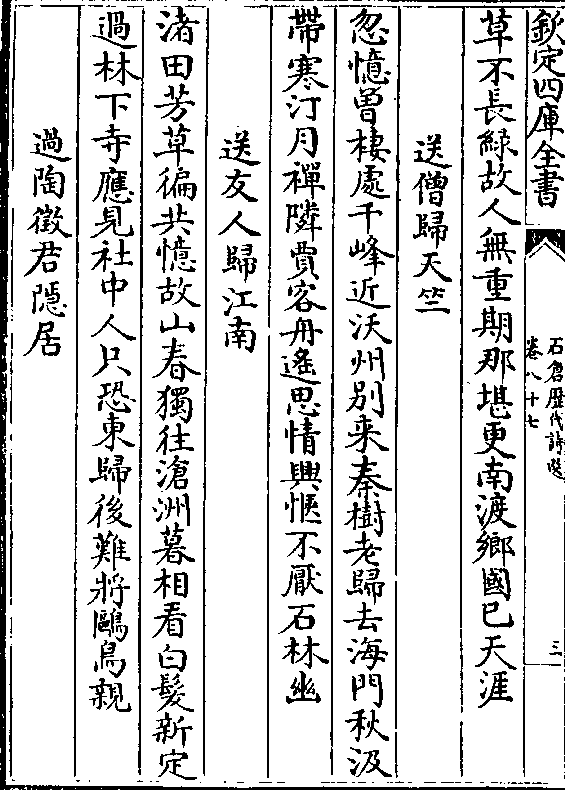 欽定四庫全書
石倉歴代詩選
卷八十七
三
草不長緑故人無重期那堪更南渡鄉國已天涯
送僧歸天竺
忽憶曽棲處千峰近沃州别來秦樹老歸去海門秋汲
帶寒汀月禪隣賈客舟遙思情興愜不厭石林幽
送友人歸江南
渚田芳草徧共憶故山春獨往滄洲暮相看白髮新定
過林下寺應見社中人只恐東歸後難將鷗鳥親
過陶徵君隱居